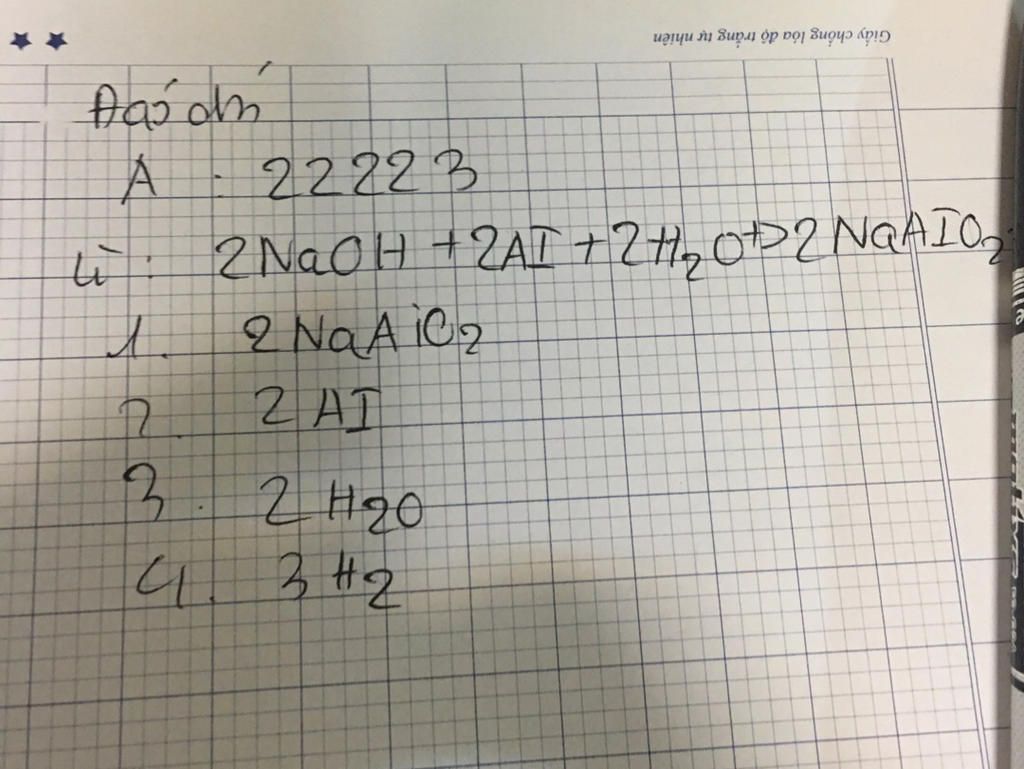 Giấy chống lóa độ trắng tự nhiên
A : 22223
: 2NaOH + 2AI + 2H2O => 2NaAIO2
1. 2NaAiO2
2. 2AI
3. 2H2O
4. 3H2